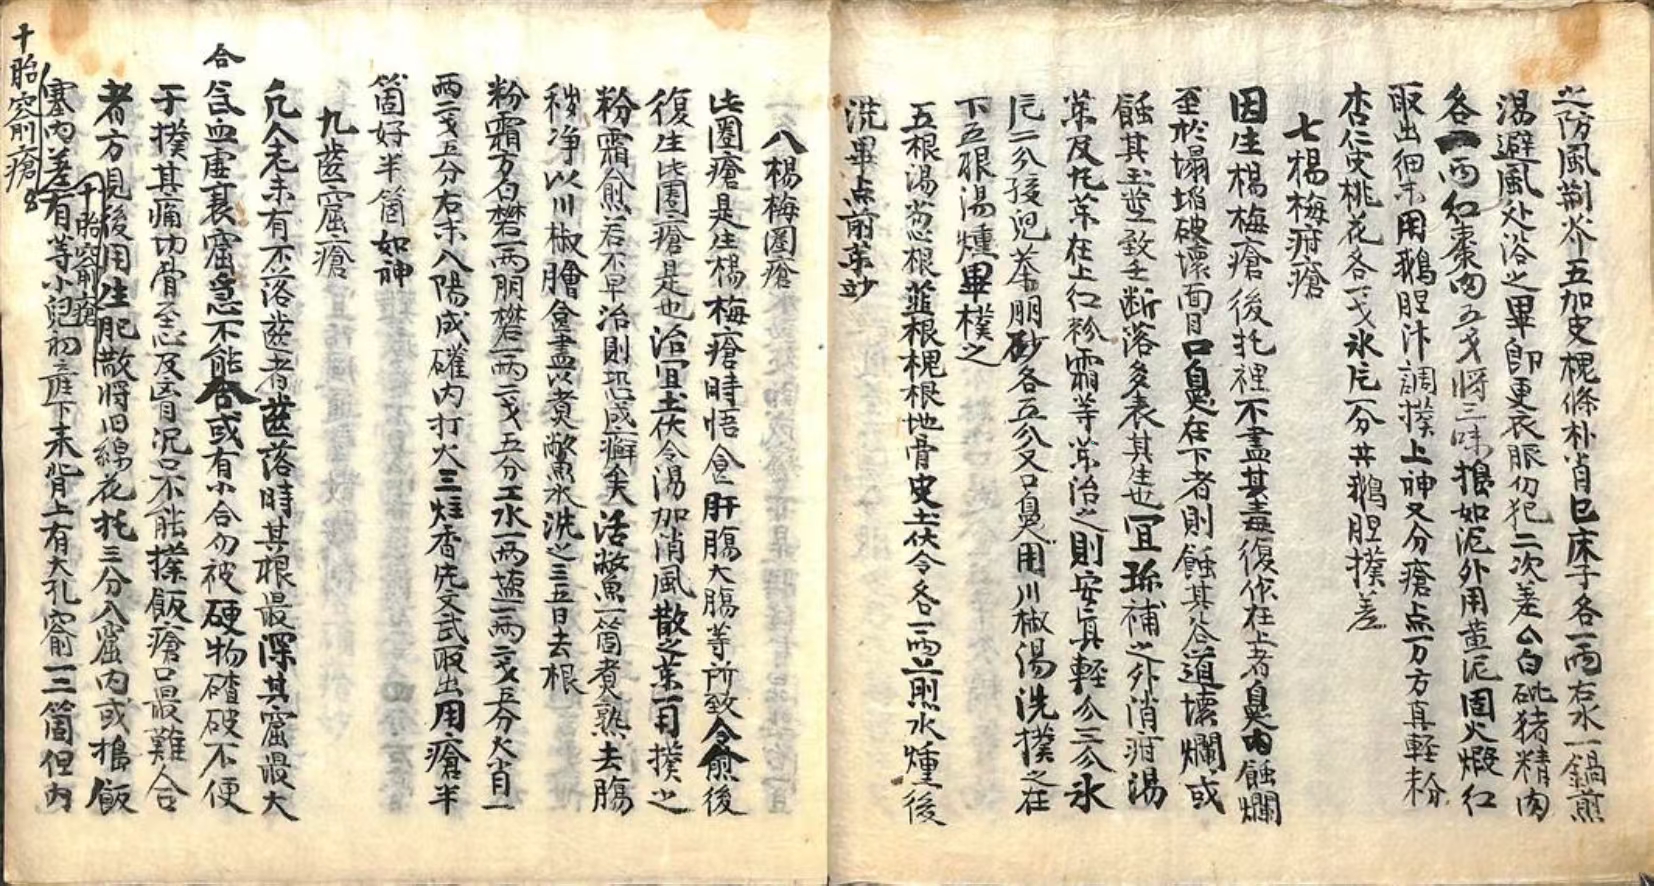 之防風荆芥五加皮槐條朴肖巳床子各一兩右水一鍋煎
湯避風处浴之畢即更衣服勿犯二次差厶白砒猪精肉
各一兩紅棗肉五戔將三味搗如泥外用黄泥固火煅紅
取出細末用鵝胆汴調搽上神又分瘡点一方方真軽粉
杏仁皮桃花各一戔氷片一分共鵝胆搽差
七楊梅疳瘡
因生楊梅瘡後托裡不盡其毒復作在上者鼻内蝕爛
至於塌堦破壞面目口鼻在下者則蝕其谷道壞爛或
蝕其玉莖致壬断落多表其生也宜 補之外消疳湯
茶及圪茶在上紅粉霜等茶治之則安真軽分三分氷
片二分孩児茶朋砂各五分又口鼻用川椒湯洗搽之在
下五根湯燻畢樸之
五根湯葱根韮根槐根地骨皮土茯令各一兩並煎水燻後
洗畢点前茶妙
八楊梅圈瘡
此圈瘡是生楊梅瘡時悟食肝腸大腸等所致令愈後
復生此圈瘡是也治宜土伏令湯加消風散之茶一用搽之
粉霜愈若不早治則恐成癬矣活鰲魚一箇者煑熟去腸
穢净以川椒膾食盡以煮鰲魚水洗之三五日去根
粉霜方白礬一兩朋礬一兩二戔五分工水一兩盐一兩二戔五分火肖一
兩二戔五分右末八陽成確内打火三炷香先文武取出用瘡半
箇好半箇如神
九齒窟瘡
凢人老未有不落齒者齒落時其根最深其窟最大
合
氣血虚衰窟急不能合或有小合勿被硬物䃰破不便
于搽其痛切骨至忌及盲況口不能搽飯瘡口最難合
者方見後用生肥散將旧綿花托三分入窟内或搗飯
塞内差 有等小兒初𠯁下来背上有大孔窬一三箇但内
十胎窬瘡
十胎窬瘡